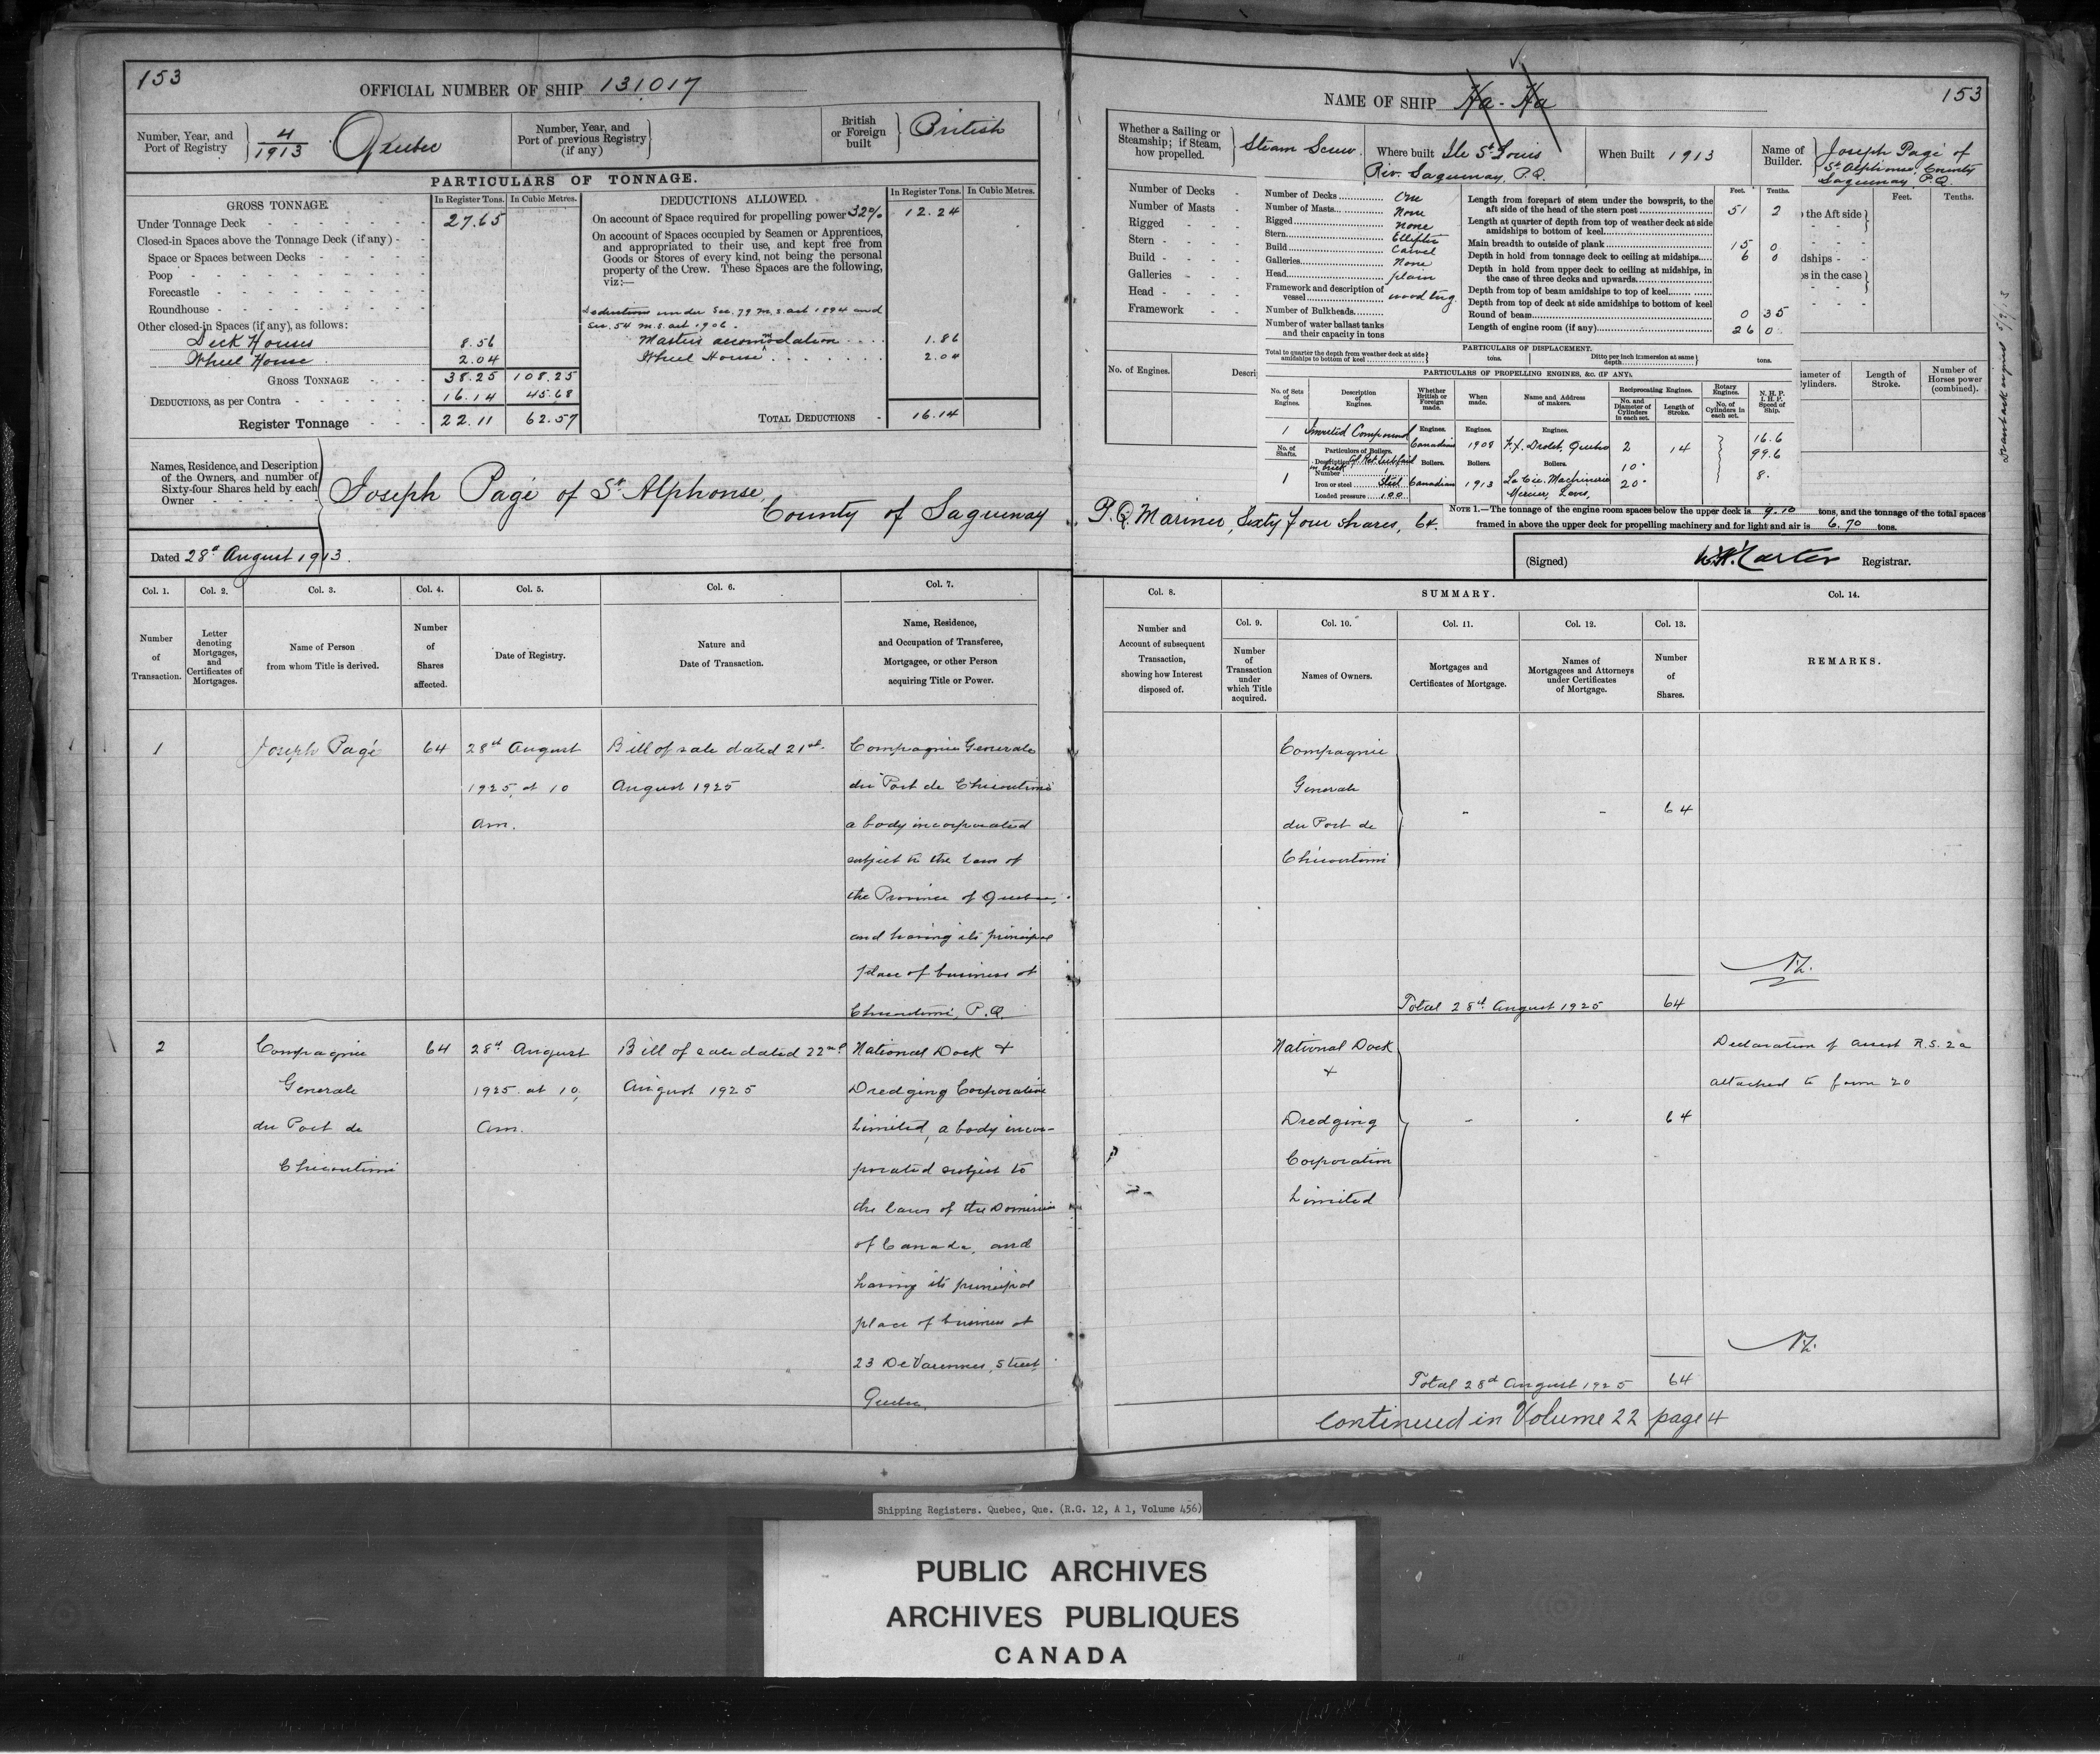 153
OFFICIAL NUMBER OF SHIP 131017
Number, Year, and Port of Registry } 4/1913 Quebec
Number, Year, and Port of previous Registry (if any) }
British or Foreign built } British
PARTICULARS OF TONNAGE.
GROSS TONNAGE. In Register Tons. In Cubic Metres.
Under Tonnage Deck 27.65
Closed-in Spaces above the Tonnage Deck (if any) -
Space or Spaces between Decks
Poop
Forecastle
Roundhouse
Other closed-in Spaces (if any), as follows:
Deck Houses 8.56
Wheel House 2.04
GROSS TONNAGE 38.25 108.25
DEDUCTIONS, as per Contra 16.14 45.68
Register Tonnage 22.11 62.57
DEDUCTIONS ALLOWED. In Register Tons. In Cubic Metres.
On account of Space required for propelling power 32% 12.24
On account of Spaces occupied by Seamen or Apprentices,
and appropriated to their use, and kept free from
Goods or Stores of every kind, not being the personal
property of the Crew. These Spaces are the following,
viz:—
Deductions under Sec. 79 M.S. act 1894 and
Sec. 54 M.S. act 1906.
Masters accommodation 1.86
Wheel House 2.04
TOTAL DEDUCTIONS 16.14
Names, Residence, and Description
of the Owners, and number of
Sixty-four Shares held by each
Owner
Joseph Pagé of St Alphonse,
County of Saguenay
Dated 28th August 1913.
Col. 1. Col. 2. Col. 3. Col. 4. Col. 5. Col. 6. Col. 7.
Number of Transaction.
Letter denoting Mortgages, and Certificates of Mortgages.
Name of Person from whom Title is derived.
Number of Shares affected.
Date of Registry.
Nature and Date of Transaction.
Name, Residence, and Occupation of Transferee, Mortgagee, or other Person acquiring Title or Power.
1 Joseph Pagé 64 28th August Bill of sale dated 21st. Compagnie Generale
1925, at 10 August 1925 du Port de Chicoutimi
am. a body incorporated
subject to the laws of
the Province of Quebec,
and having its principal
place of business at
Chicoutimi, P.Q.
2 Compagnie 64 28th August Bill of sale dated 22nd National Dock &
Generale 1925. at 10, August 1925 Dredging Corporation
du Port de am. Limited, a body incor-
Chicoutimi porated subject to
the laws of the Dominion
of Canada, and
having its principal
place of business at
23 De Varennes, Street
Quebec.
NAME OF SHIP Ha-Ha 153
Whether a Sailing or Steamship; if Steam, how propelled. } Steam Screw.
Where built Ile St Louis
Riv. Saguenay, P.Q.
When Built 1913
Name of Builder. } Joseph Pagé of
St Alphonse, County
Saguenay, P.Q.
Number of Decks
Number of Masts
Rigged
Stern
Build
Galleries
Head
Framework
No. of Engines.
Descri
Number of Decks One
Number of Masts None
Rigged None
Stern Elliptic
Build Carvel
Galleries None
Head plain
Framework and description of vessel wood tug
Number of Bulkheads
Number of water ballast tanks
and their capacity in tons
Feet. Tenths.
Length from forepart of stem under the bowsprit, to the
aft side of the head of the stern post 51 2
Length at quarter of depth from top of weather deck at side
amidships to bottom of keel
Main breadth to outside of plank 15 0
Depth in hold from tonnage deck to ceiling at midships 6 0
Depth in hold from upper deck to ceiling at midships, in
the case of three decks and upwards
Depth from top of beam amidships to top of keel
Depth from top of deck at side amidships to bottom of keel
Round of beam 0 35
Length of engine room (if any) 26 0
Feet. Tenths.
the Aft side
dships
s in the case
iameter of ylinders.
Length of Stroke.
Number of Horses power (combined).
PARTICULARS OF DISPLACEMENT.
Total to quarter the depth from weather deck at side amidships to bottom of keel } tons. Ditto per inch immersion at same depth tons.
PARTICULARS OF PROPELLING ENGINES, &c. (IF ANY).
No. of Sets of Engines.
Description of Engines.
Whether British or Foreign made.
When made.
Name and Address of makers.
Reciprocating Engines.
No. and Diameter of Cylinders in each set.
Length of Stroke.
Rotary Engines.
No. of Cylinders in each set.
N. H. P.
I. H. P.
Speed of Ship.
Engines. Engines. Engines.
1 Inverted Compound Canadian 1908 F.X. Drolet, Quebec 2 14 16.6
99.6
No. of Shafts.
Particulars of Boilers.
Description
in brick
Number 1
Boilers. Boilers. Boilers.
10"
1 Iron or steel Steel Canadian 1913 La Cie. Machinerie 20" 8.
Loaded pressure 100 Mercier, Levis,
P.Q. Mariner, Sixty four shares, 64.
NOTE 1.—The tonnage of the engine room spaces below the upper deck is 9.10 tons, and the tonnage of the total spaces
framed in above the upper deck for propelling machinery and for light and air is 6.70 tons.
(Signed) W.H. Carter Registrar.
Col. 8. SUMMARY. Col. 14.
Col. 9. Col. 10. Col. 11. Col. 12. Col. 13.
Number and Account of subsequent Transaction, showing how Interest disposed of.
Number of Transaction under which Title acquired.
Names of Owners.
Mortgages and Certificates of Mortgage.
Names of Mortgagees and Attorneys under Certificates of Mortgage.
Number of Shares.
REMARKS.
Compagnie
Generale
du Port de - - 64
Chicoutimi
Total 28th August 1925 64
National Dock Declaration of R.S. 2a
& attached to form 20
Dredging - - 64
Corporation
Limited
Total 28th August 1925 64
Continued in Volume 22 page 4
Shipping Registers. Quebec, Que. (R.G. 12, A 1, Volume 456)
PUBLIC ARCHIVES
ARCHIVES PUBLIQUES
CANADA